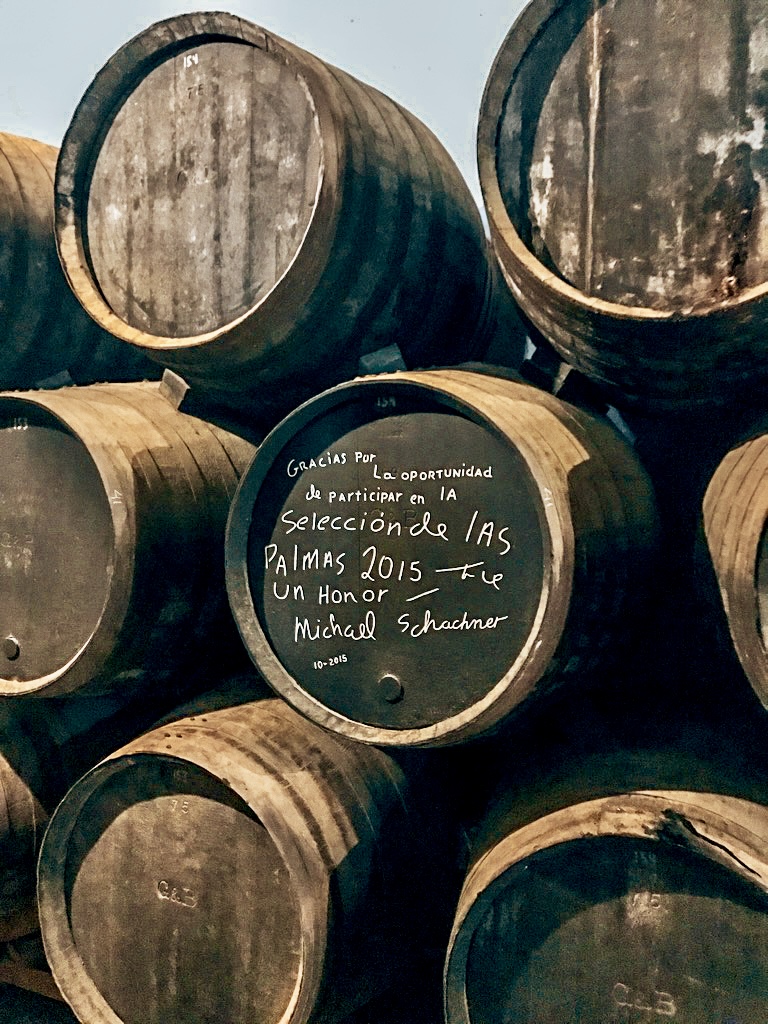 154
75
153
41
154
41
GRACIAS Por
La oportunidad
de participar en lA
Selección de lAS
PAlMAS 2015 — Fue
UN HONOr —
Michael Schachner
10-2015
75
G&B
G&B